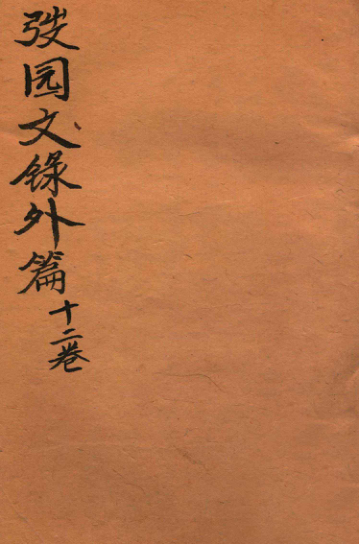 弢园文録外篇十二卷